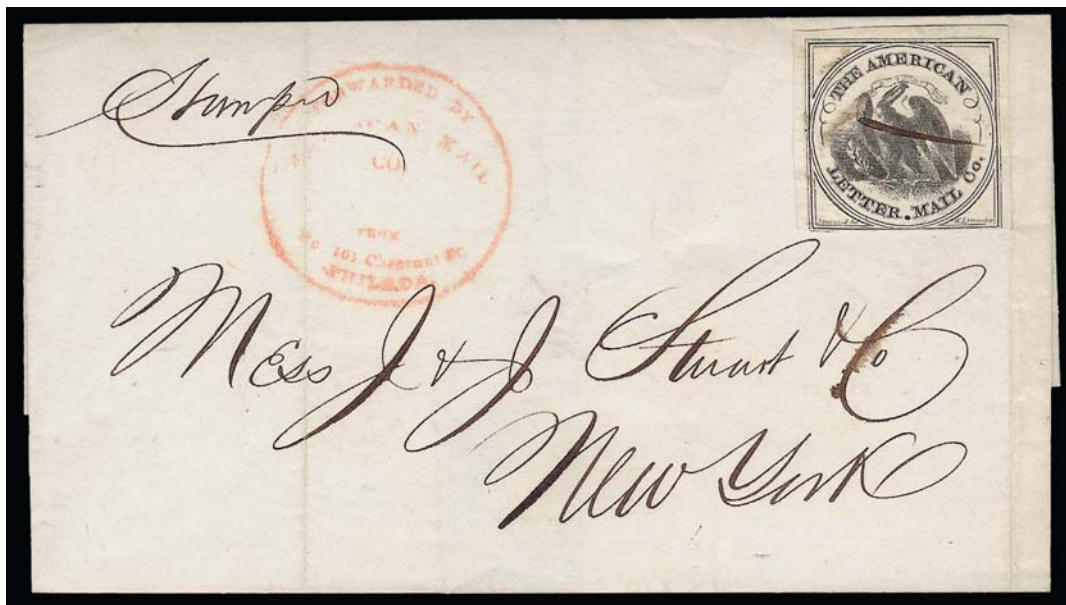 Stamped
FORWARDED BY
AMERICAN MAIL
CO.
FROM
No 101 Chestnut St.
PHILADA.
THE AMERICAN
LETTER. MAIL Co.
Mess J & J Stuart & Co
New York